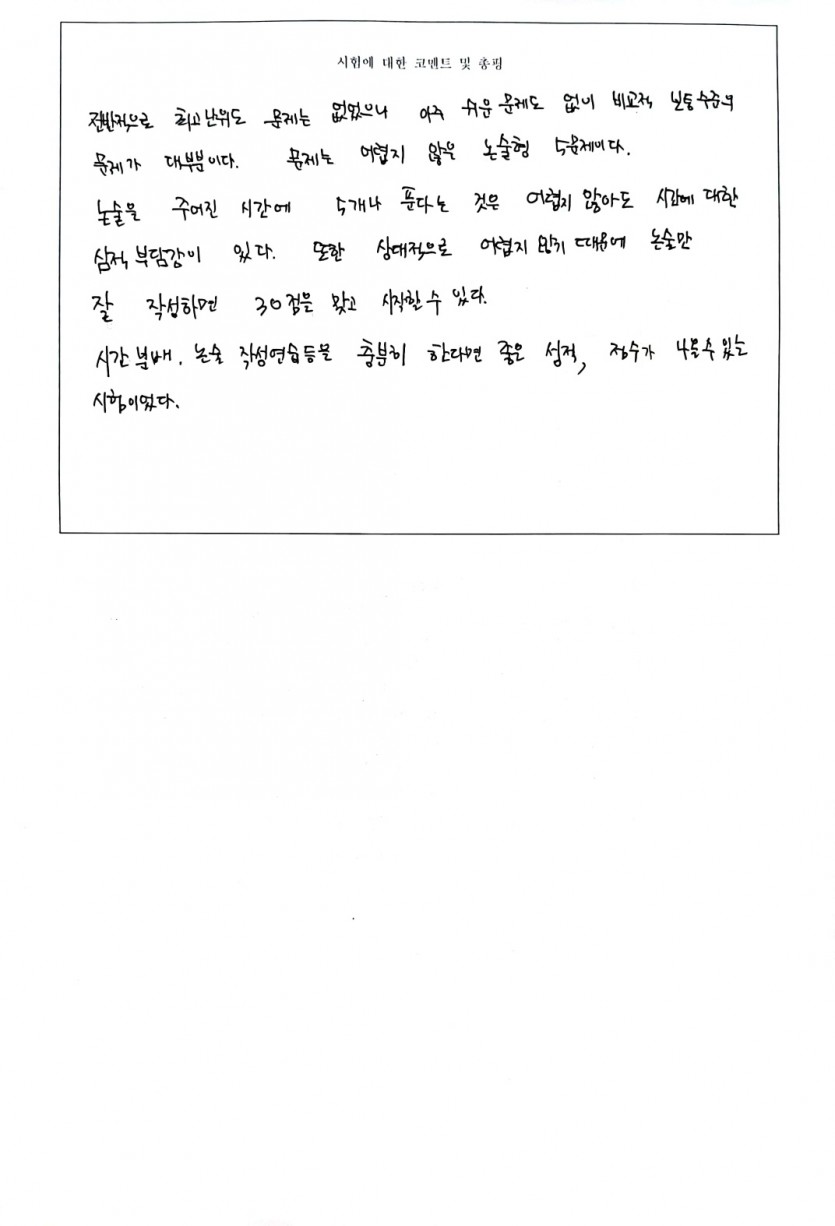 시험에 대한 코멘트 및 총평
전반적으로 최고난위도 문제는 없었으나 아주 쉬운 문제도 없이 비교적 보통수준의
문제가 대부분이다. 문제는 어렵지 않은 논술형 5문제이다.
논술을 주어진 시간에 5개나 푼다는 것은 어렵지 않아도 시간에 대한
심적 부담감이 있다. 또한 상대적으로 어렵지 않기 때문에 논술만
잘 작성하면 30점을 맞고 시작할 수 있다.
시간 분배, 논술 작성연습등을 충분히 한다면 좋은 성적, 점수가 나올 수 있는
시험이었다.